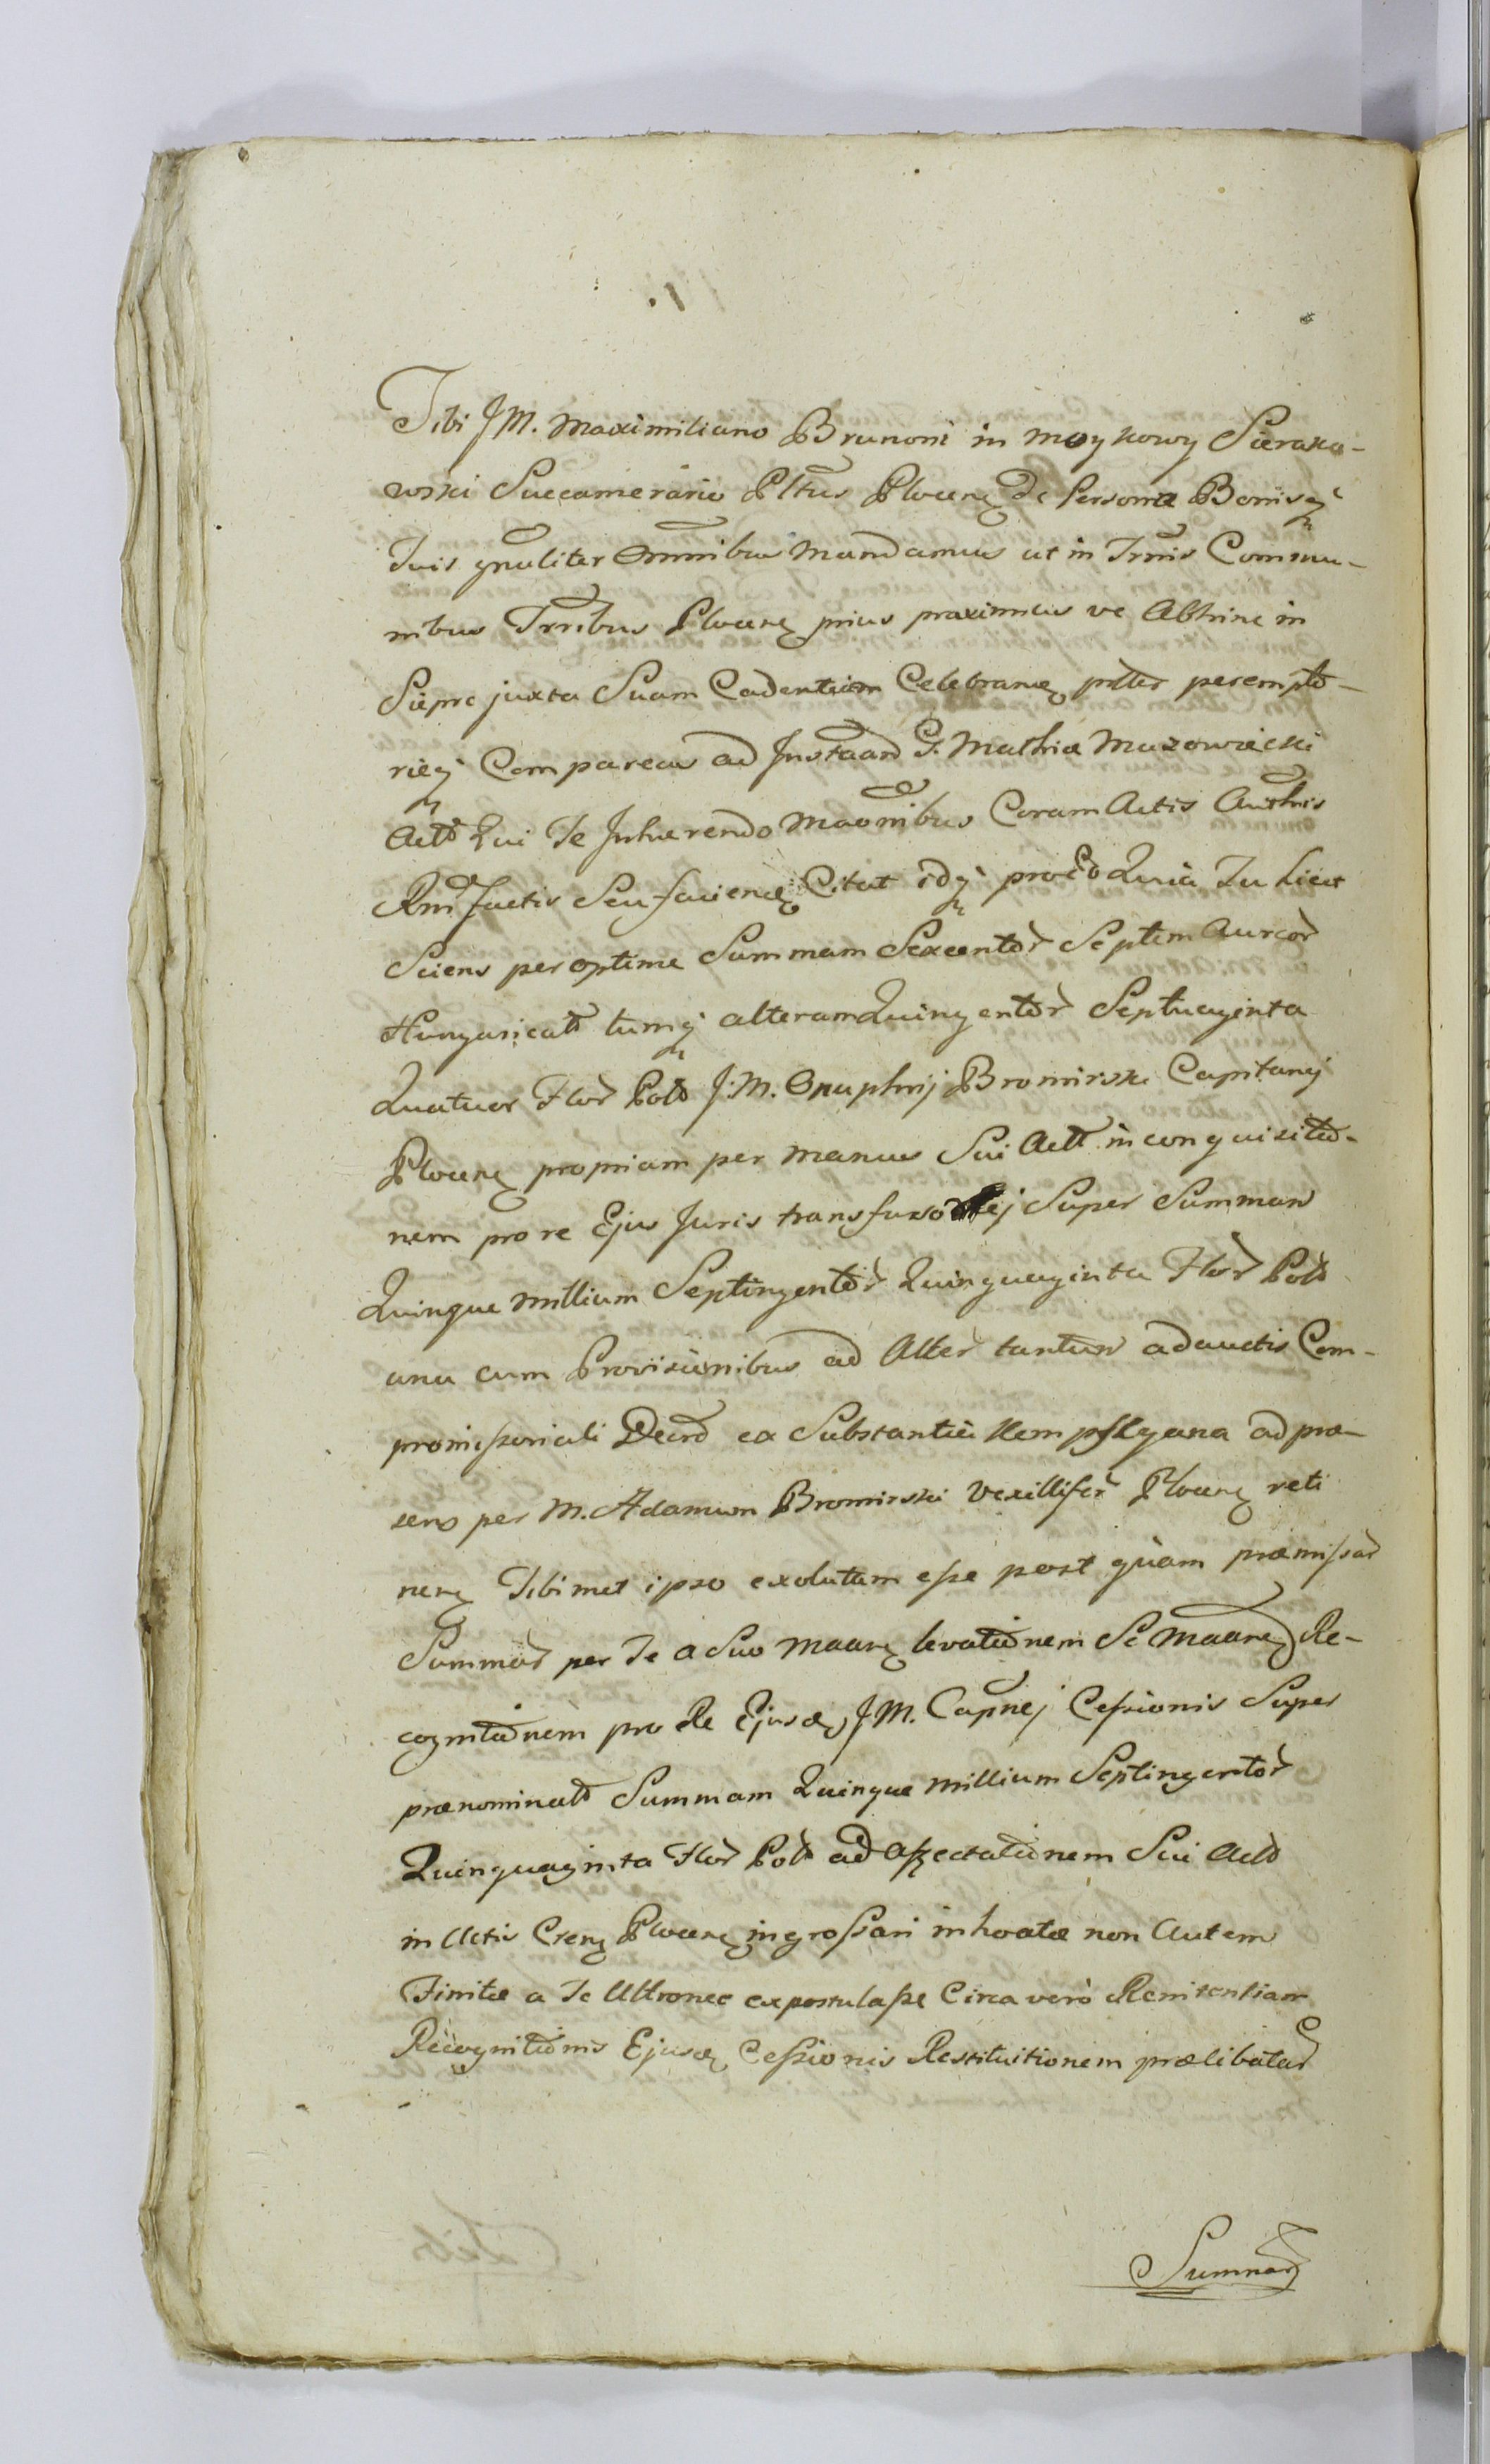 Tibi J M. Maximiliano Brunoni in Moykowy Sierako-
wski Succamerario Pltus Plocen de Persona Bonisq
Tuis gnaliter Omnibus Mandamus ut in Trnis Commu-
nibus Trribus Plocen prius proximius ve Abhinc in
Sieprc juxta Suam Cadentiam Celebran pltter perempto-
rieq Compareas ad Instaan G. Mathiæ Mazowiecki
Act Qui Te Inhærendo Maonibus Coram Actis Authris
Rni factis Seu facien Citat idq prœo Quia Tu Licet
Sciens peroptime Summam Sexcentor Septem Aureor
Hungaricalt tumq alteram Quingentor Septuaginta
Quatuor Flor Pol J. M. Onuphrij Bromirski Capitanj
Plocen propriam per manus Sui Act in conquisitio-
nem pro re Ejus Juris transfuso ej Super Summam
Quinque millium Septingentor Quinquaginta Flor Pol
una cum Provisionibus ad Alter tantum adauctis Com-
promissoriali Decro ex Substantia Kempskyana ad præ-
sens per M. Adamum Bromirski Vexillifer Plocen reti
nen Tibimet ipso exolutam esse post quam præmissar
Summar per Te a Suo Maan levationem Se Maan Re-
cognitionem pro Re Ejusd J M. Capnej Cessionis Super
prænominat Summam Quinque millium Septingentor
Quinquaginta Flor Pol ad affectationem Sui Act
in Actis Cren Plocen ingrossari inhoatæ non Autem
Finitæ a Te Ultronee expostulasse Circa verò Renitentiam
Recognitionis Ejusd Cessionis Restituitionem prælibatar
Summar